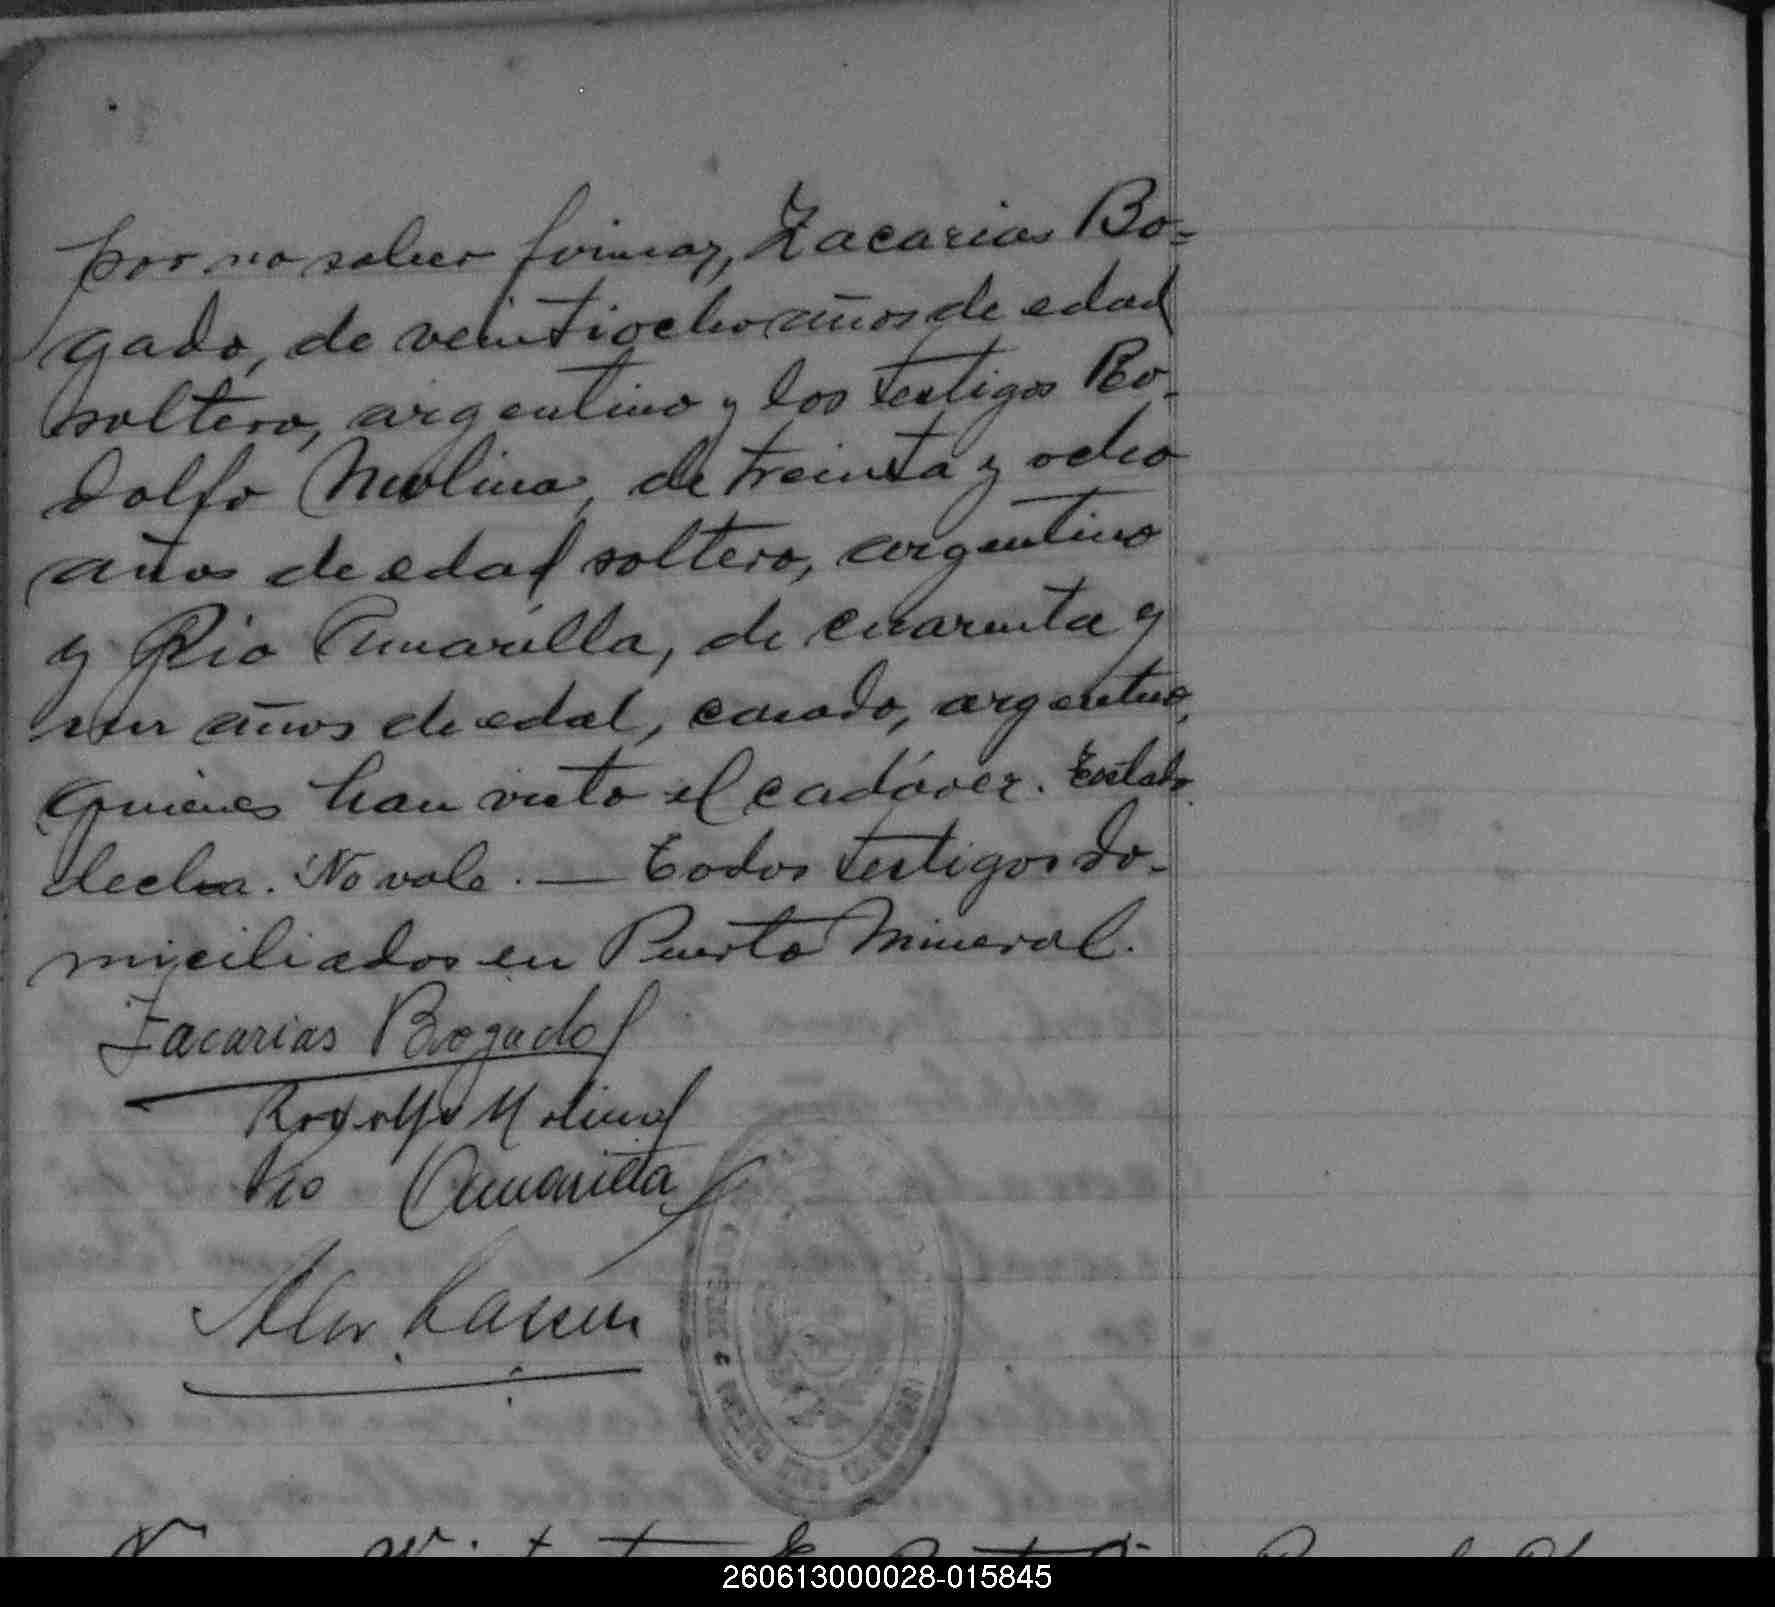 por no saber firmar, Zacarias Bo=
gado, de veintiocho años de edad
soltero, argentino y los testigos Ro-
dolfo Molina, de treinta y ocho
años de edad soltero, argentino
y Pio Amarilla, de cuarenta y
un años de edad, casado, argentino,
quienes han visto el cadáver. Testado
decha. No vale. — Todos testigos do-
miciliados en Puerto Mineral.
Zacarias Bogado
Rodolfo Molina
Pio Amarilla
260613000028-015845